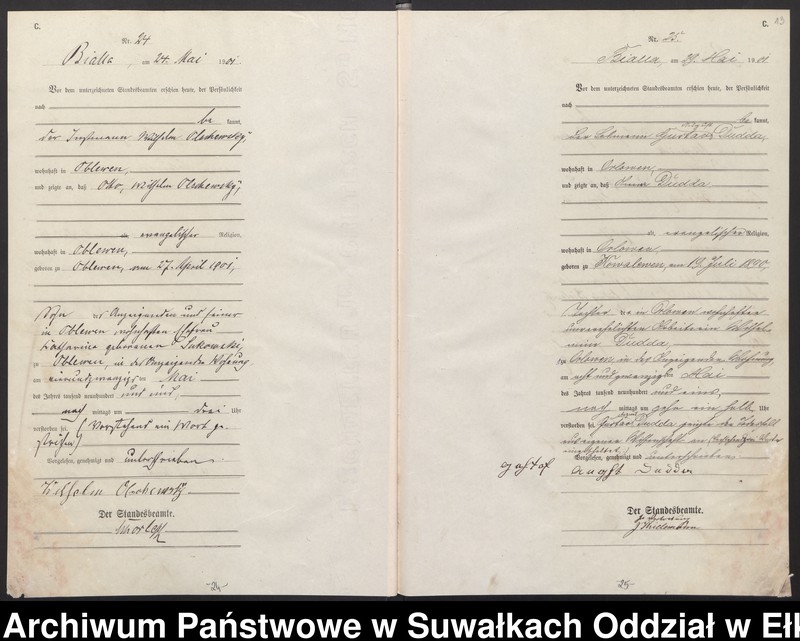 C.
Nr. 24
Bialla, am 24. Mai 1901.
Vor dem unterzeichneten Standesbeamten erschien heute, der Persönlichkeit
nach
be kannt,
der Instmann Wilhelm Olschewsky,
wohnhaft in Oblewen,
und zeigte an, daß Otto, Wilhelm Olschewsky,
evangelischer Religion,
wohnhaft in Oblewen,
geboren zu Oblewen, am 27. April 1901,
Sohn des Anzeigenden und seiner
in Oblewen wohnhaften Ehefrau
Katharine geborenen Sukowski,
zu Oblewen, in des Anzeigenden Wohnung
am einundzwanzigsten Mai
des Jahres tausend neunhundert und eins,
nach mittags um drei Uhr
verstorben sei. (Vorstehend ein Wort ge-
strichen)
Vorgelesen, genehmigt und unterschrieben.
Wilhelm Olschewsky
Der Standesbeamte.
-24-
C. 13
Nr. 25.
Bialla, am 29. Mai 1901
Vor dem unterzeichneten Standesbeamten erschien heute, der Persönlichkeit
nach
be kannt,
Gustav Dudda,
wohnhaft in Orlowen,
und zeigte an, daß Dudda
evangelischer Religion,
wohnhaft in Orlowen,
geboren zu Kowalewen, am 19. Juli 1890,
Tochter der in Orlowen wohnhaften
unverehelichten Arbeiterin Wilhel-
mine Dudda,
zu Orlowen, in der Anzeigenden Wohnung
am acht und zwanzigsten Mai
des Jahres tausend neunhundert und eins,
nach mittags um zehn ein halb Uhr
verstorben sei. Dudda zeigte den Sterbefall
aus eigener Wissenschaft an
Vorgelesen, genehmigt und unterschrieben
August Dudda
Der Standesbeamte.
In Vertretung
-25-
Archiwum Państwowe w Suwałkach Oddział w Ełk